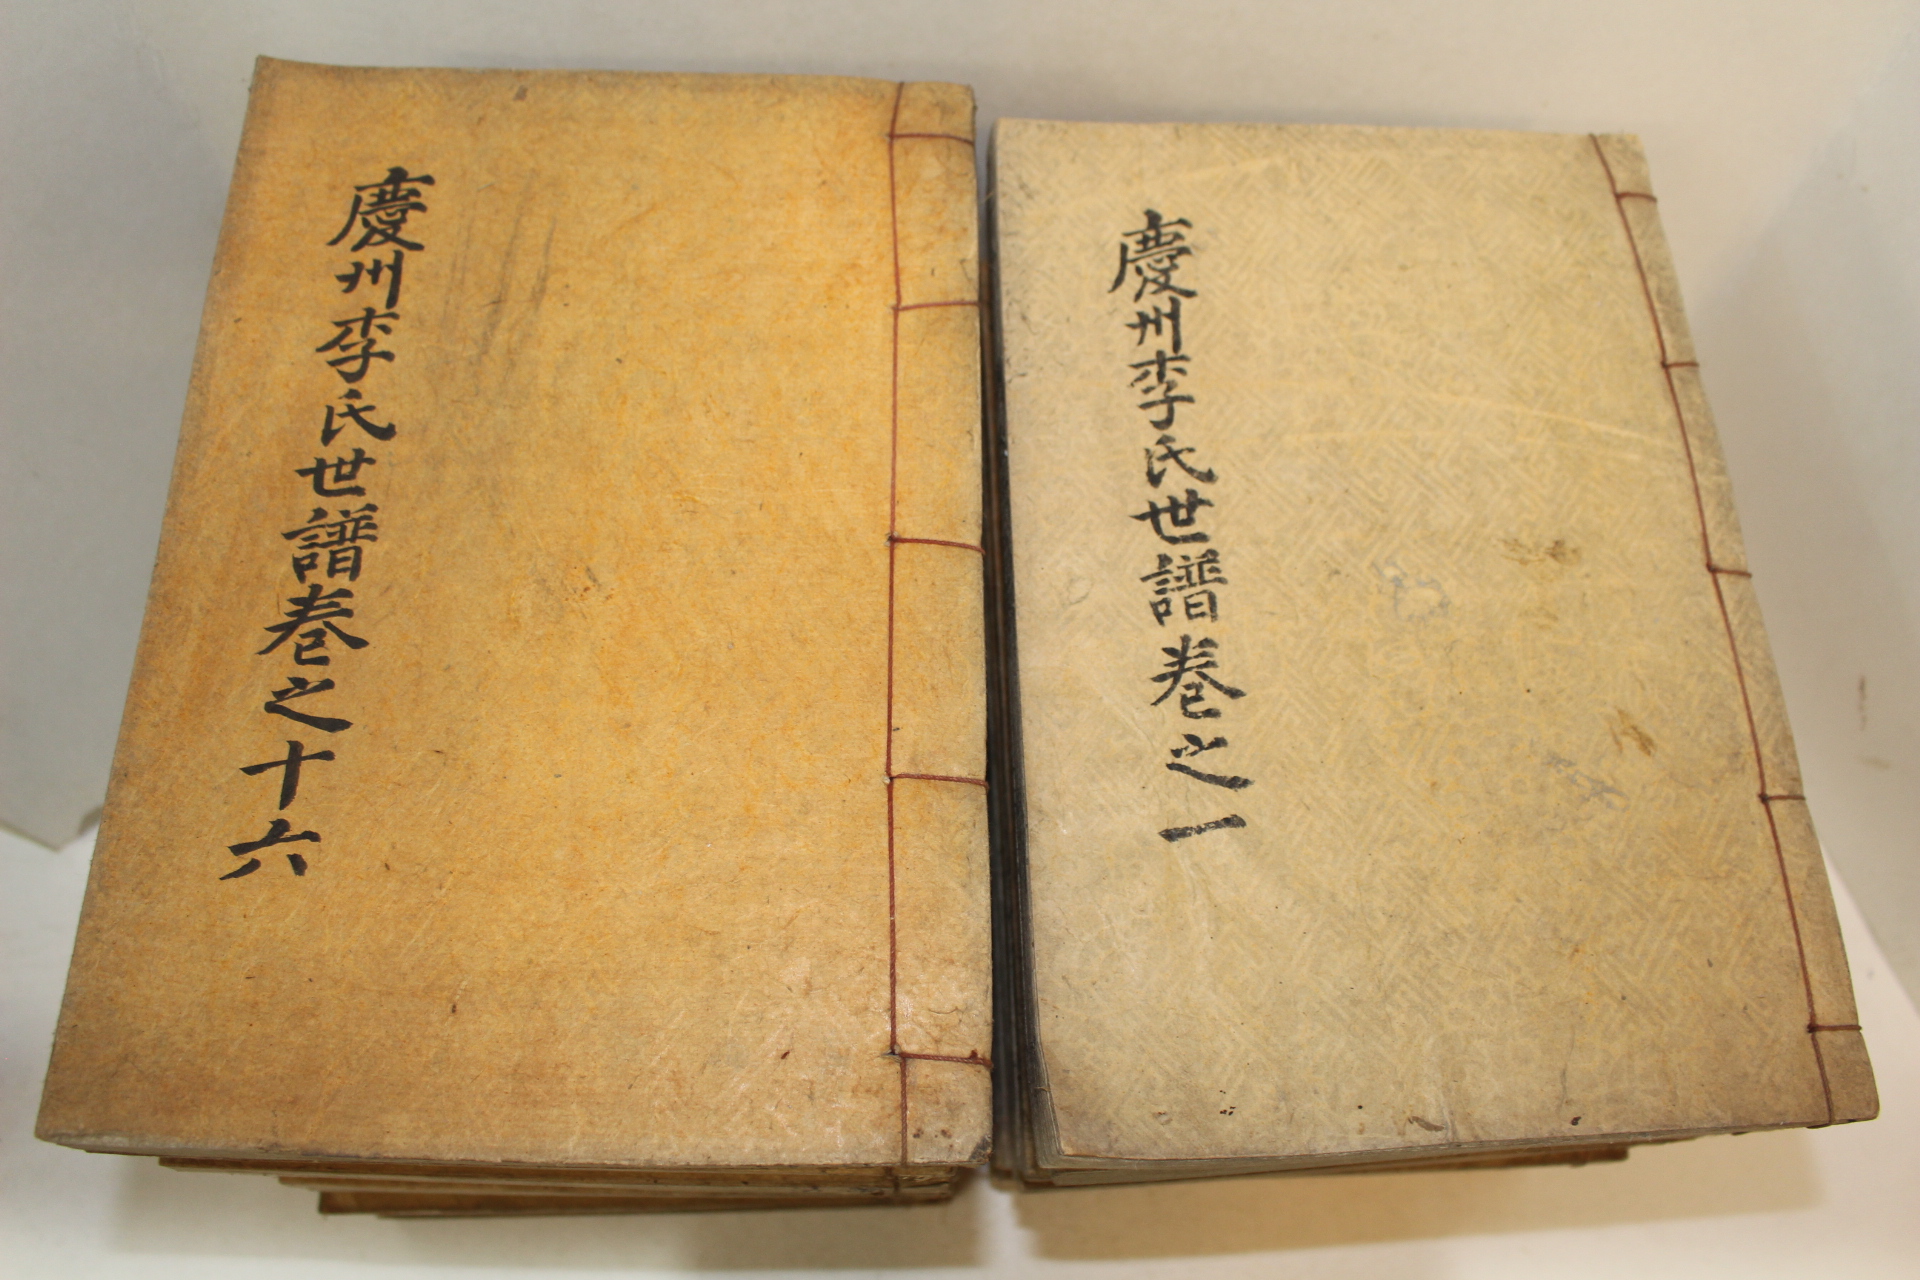 慶州李氏世譜卷之一
慶州李氏世譜卷之十六